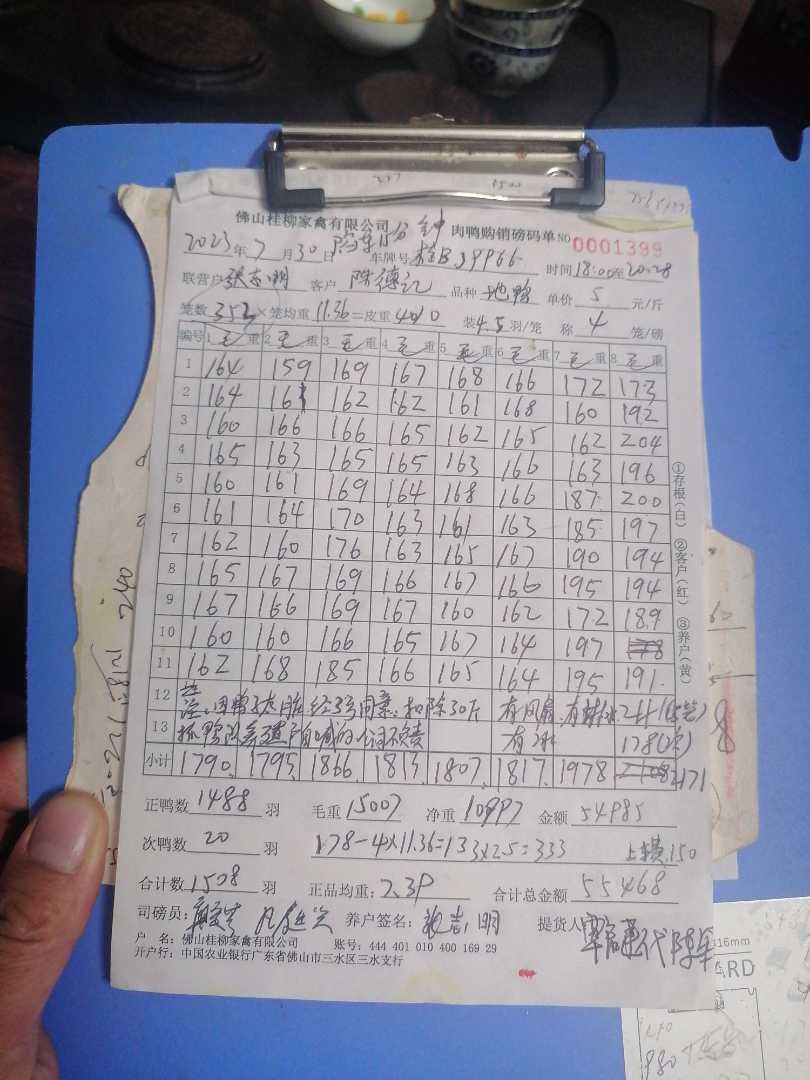 佛山桂柳家禽有限公司 肉鸭购销磅码单 NO 0001399
2023年7月30日 车牌号桂BJ9966 时间18:00至20:28
联营户 张志明 客户 陈德记 品种 地鸭 单价 5 元/斤
笼数 352 ×笼均重 11.36 =皮重 4010 装4.5羽/笼 称 4 笼/磅
编号 1 毛重 2 毛重 3 毛重 4 毛重 5 毛重 6 毛重 7 毛重 8 毛重
1 164 159 169 167 168 166 172 173
2 164 161 162 162 161 168 160 192
3 160 166 166 165 162 165 162 204
4 165 163 165 165 163 166 163 196
5 160 161 169 164 168 166 187 200
6 161 164 170 163 161 163 185 197
7 162 160 176 163 165 167 190 194
8 165 167 169 166 167 166 195 194
9 167 166 169 167 160 162 172 189
10 160 160 166 165 167 164 197 178
11 162 168 185 166 165 164 195 191
12 扣除30斤 有风扇
13 有 178(次)
小计 1790 1795 1866 1813 1807 1817 1978 2171
正鸭数 1488 羽 毛重 15007 净重 10997 金额 54985
次鸭数 20 羽 178-4×11.36=133×2.5=333 150
合计数 1508 羽 正品均重: 7.39 合计总金额 55468
司磅员: 养户签名: 张志明 提货人
户 名: 佛山桂柳家禽有限公司 账号: 444 401 010 400 169 29
开户行: 中国农业银行广东省佛山市三水区三水支行
①存根(白) ②客户(红) ③养户(黄)
316mm
ARD